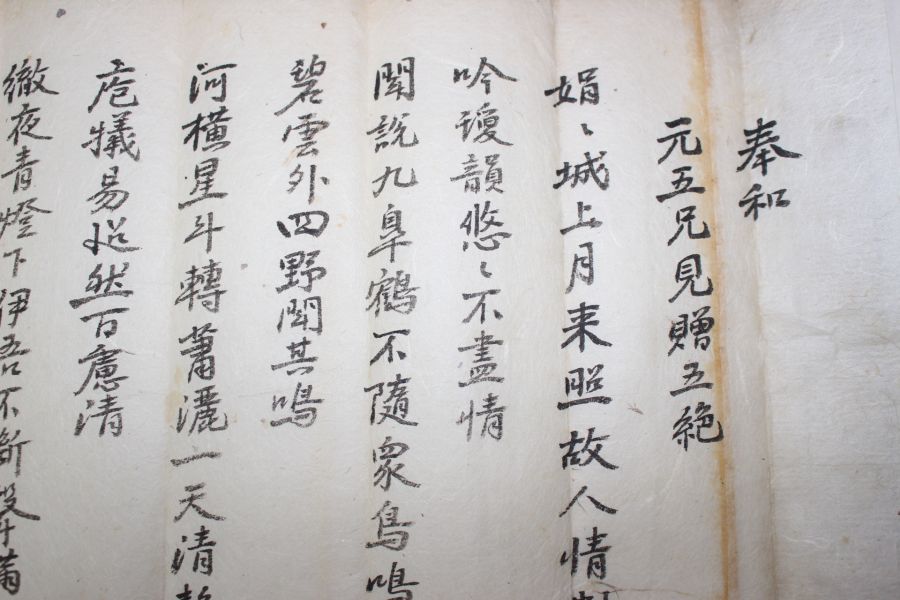 奉和
元五兄見贈五絶
娟〻城上月来照故人情
吟瓊韻悠〻不盡情
聞說九皐鶴不隨衆鳥鳴
碧雲外四野聞其鳴
河橫星斗轉蕭灑一天清
庖犠易悠然百慮清
徹夜青燈下伊吾不斷